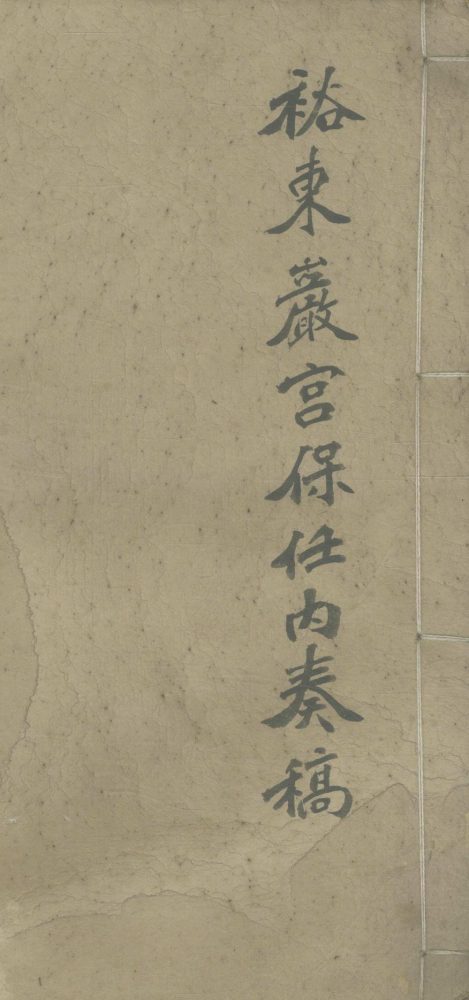 裕東巖宮保任内奏稿